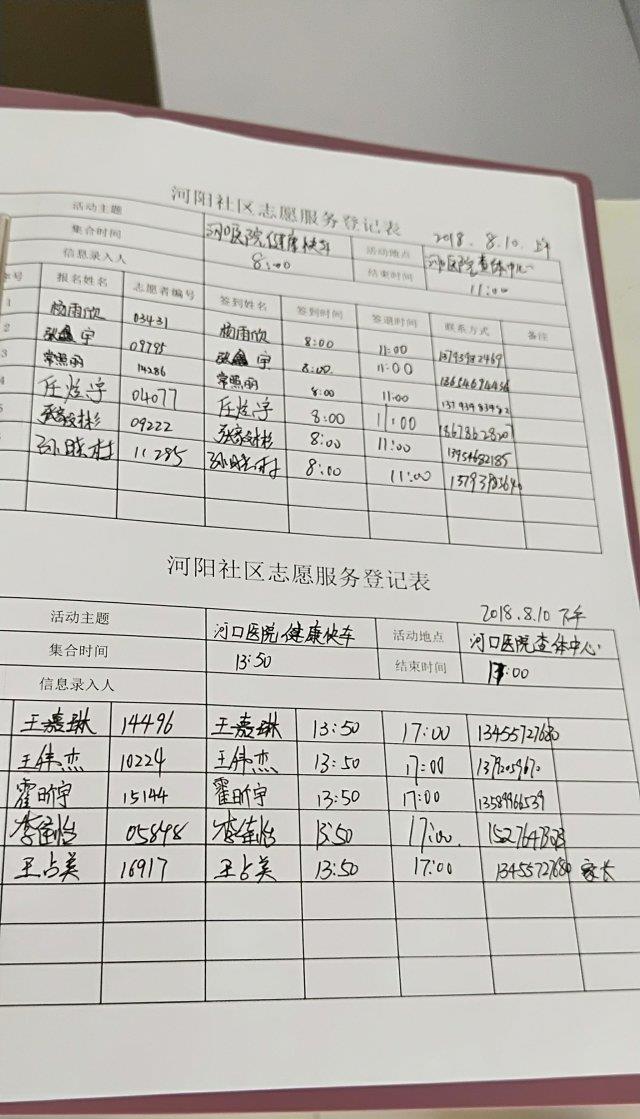 河阳社区志愿服务登记表
2018.8.10.上午
活动主题 河口医院健康快车 活动地点 河口医院查体中心
集合时间 8:00 结束时间 11:00
信息录入人
序号 报名姓名 志愿者编号 签到姓名 签到时间 签退时间 联系方式 备注
1 杨雨欣 03431 杨雨欣 8:00 11:00
2 张鑫宇 09795 张鑫宇 8:00 11:00
3 常熙雨 14286 常熙雨 8:00 11:00
4 任煜宇 04077 任煜宇 8:00 11:00
09222 8:00 11:00
孙晓村 11285 孙晓村 8:00 11:00
河阳社区志愿服务登记表
2018.8.10 下午
活动主题 河口医院健康快车 活动地点 河口医院查体中心
集合时间 13:50 结束时间 17:00
信息录入人
王嘉琳 14496 王嘉琳 13:50 17:00 13455727680
王伟杰 10224 王伟杰 13:50 17:00
霍昕宇 15144 霍昕宇 13:50 17:00 13589966539
李佳怡 05848 李佳怡 13:50 17:00
王占美 16917 王占美 13:50 17:00 13455727680 家长